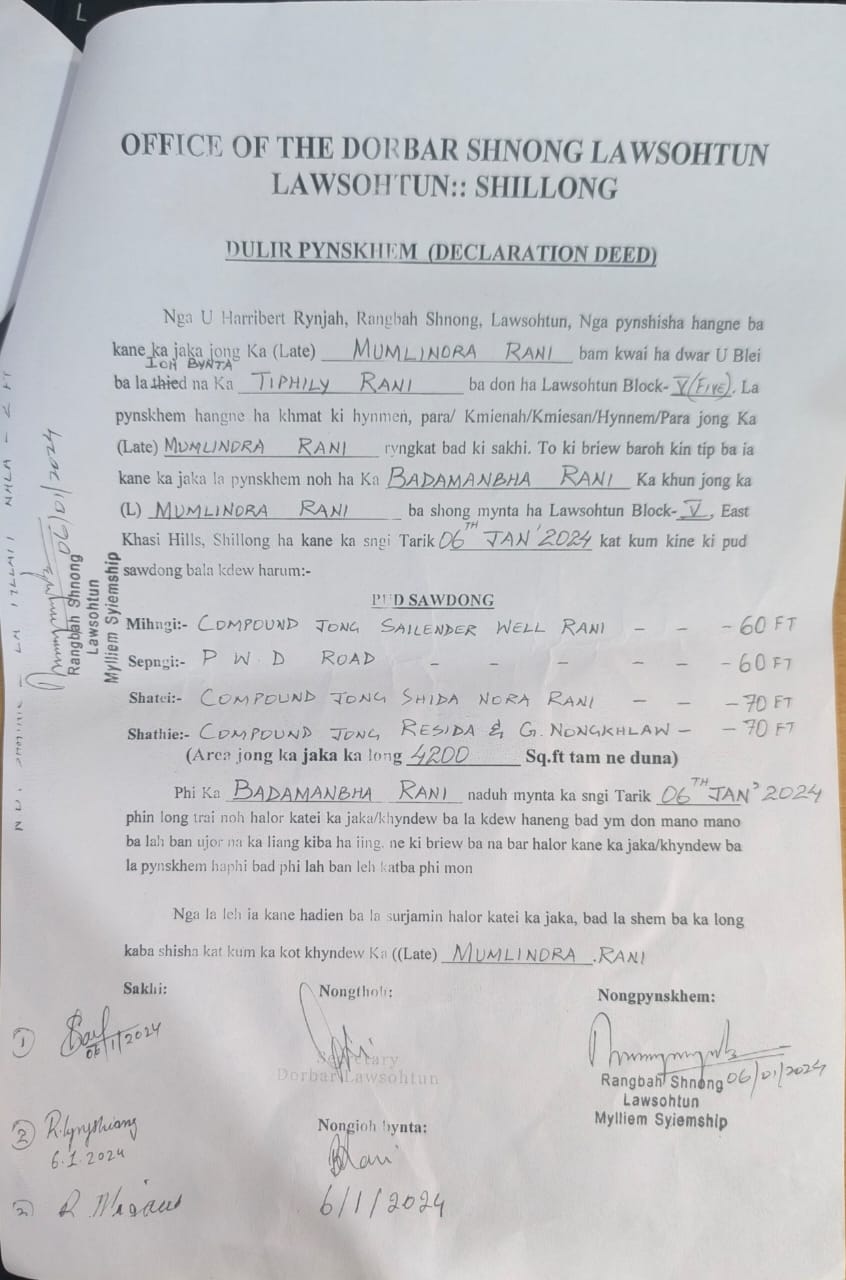 OFFICE OF THE DORBAR SHNONG LAWSOHTUN
LAWSOHTUN:: SHILLONG
DULIR PYNSKHEM (DECLARATION DEED)
Nga U Harribert Rynjah, Rangbah Shnong, Lawsohtun, Nga pynshisha hangne ba
kane ka jaka jong Ka (Late) MUMLINDRA RANI bam kwai ha dwar U Blei
IOH BYNTA
ba la thied na Ka TIPHILY RANI ba don ha Lawsohtun Block- V(FIVE). La
pynskhem hangne ha khmat ki hynmen, para/ Kmienah/Kmiesan/Hynnem/Para jong Ka
(Late) MUMLINDRA RANI ryngkat bad ki sakhi. To ki briew baroh kin tip ba ia
kane ka jaka la pynskhem noh ha Ka BADAMANBHA RANI Ka khun jong ka
(L) MUMLINDRA RANI ba shong mynta ha Lawsohtun Block- V, East
Khasi Hills, Shillong ha kane ka sngi Tarik 06TH JAN' 2024 kat kum kine ki pud
sawdong bala kdew harum:-
PUD SAWDONG
Mihngi:- COMPOUND JONG SAILENDER WELL RANI - - - 60 FT
Sepngi:- P W D ROAD - - - - - - 60 FT
Shatei:- COMPOUND JONG SHIDA NORA RANI - - - 70 FT
Shathie:- COMPOUND JONG RESIDA & G. NONGKHLAW - - 70 FT
(Area jong ka jaka ka long 4200 Sq.ft tam ne duna)
Phi Ka BADAMANBHA RANI naduh mynta ka sngi Tarik 06TH JAN' 2024
phin long trai noh halor katei ka jaka/khyndew ba la kdew haneng bad ym don mano mano
ba lah ban ujor na ka liang kiba ha iing, ne ki briew ba na bar halor kane ka jaka/khyndew ba
la pynskhem haphi bad phi lah ban leh katba phi mon
Nga la leh ia kane hadien ba la surjamin halor katei ka jaka, bad la shem ba ka long
kaba shisha kat kum ka kot khyndew Ka ((Late) MUMLINDRA .RANI
Sakhi: Nongthoh: Nongpynskhem:
1 06/1/2024
Secretary
Dorbar Lawsohtun
Rangbah Shnong 06/01/2024
Lawsohtun
Mylliem Syiemship
2 R. Lyngkhiang
6.1.2024
Nongioh bynta:
BRani
6/1/2024
06/01/2024
Rangbah Shnong
Lawsohtun
Mylliem Syiemship